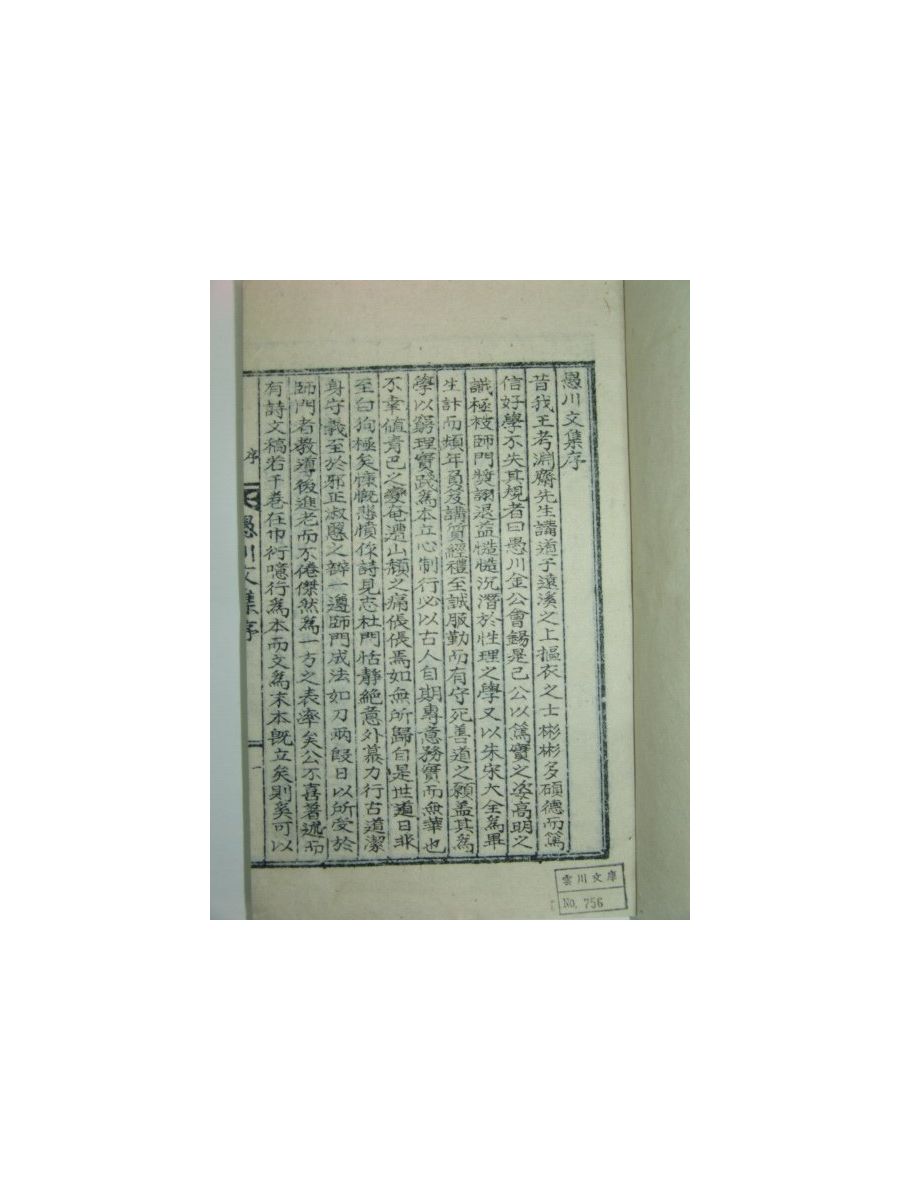 愚川文集序
昔我王考淵齋先生講道于遠溪之上摳衣之士彬彬多碩德而篤
信好學不失其規者曰愚川金公會錫是已公以篤實之姿高明之
識極被師門奬詡退益慥慥沉潛於性理之學又以朱宋大全爲畢
生計而頻年負笈講質經禮至誠服勤而有守死善道之願盖其爲
學以窮理實踐爲本立心制行必以古人自期專意務實而無華也
不幸値靑巳之變奄遭山頹之痛倀倀焉如無所歸自是世道日非
至白狗極矣慷慨悲憤作詩見志杜門恬靜絶意外慕力行古道潔
身守義至於邪正淑慝之辨一遵師門成法如刀兩段日以所受於
師門者敎導後進老而不倦傑然爲一方之表率矣公不喜著述而
有詩文稿若干卷在巾衍噫行爲本而文爲末本旣立矣則奚可以
愚川文集序
序
一
雲川文庫
No. 756